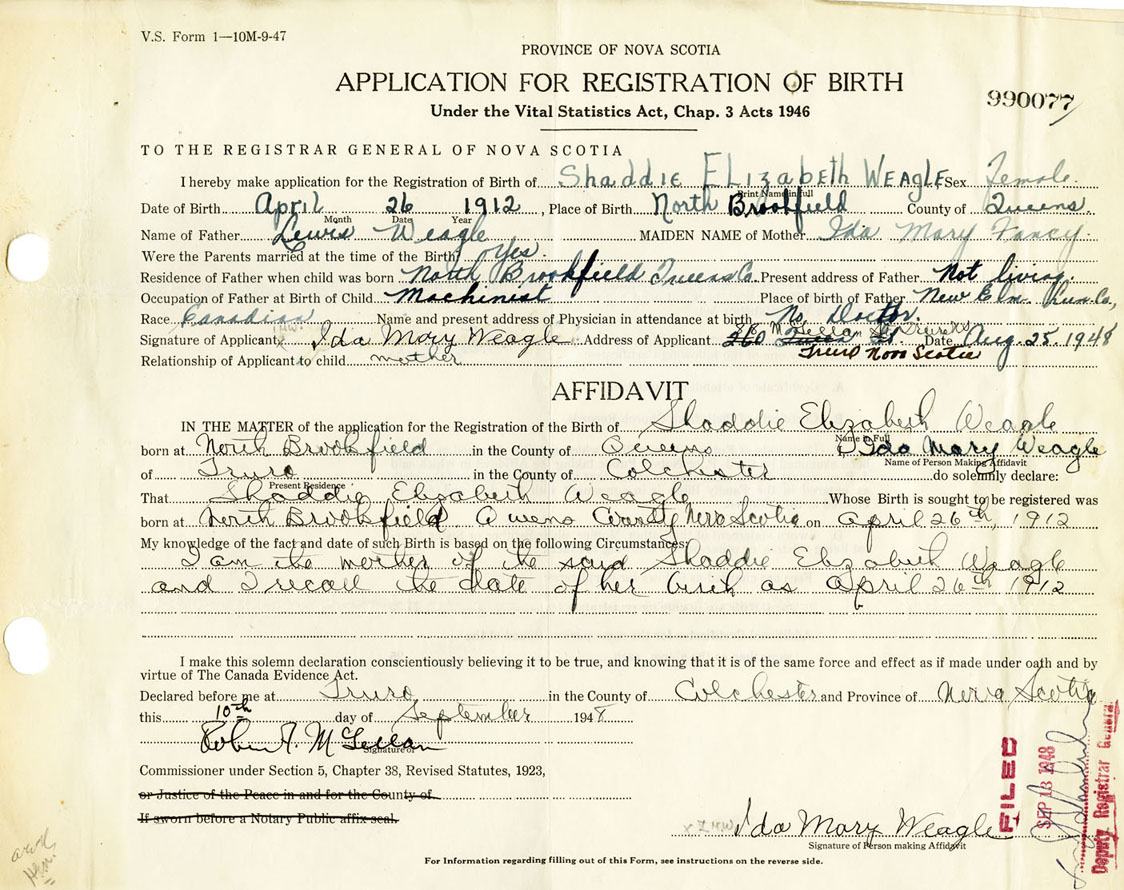 V.S. Form 1—10M-9-47
PROVINCE OF NOVA SCOTIA
APPLICATION FOR REGISTRATION OF BIRTH
990077
Under the Vital Statistics Act, Chap. 3 Acts 1946
TO THE REGISTRAR GENERAL OF NOVA SCOTIA
I hereby make application for the Registration of Birth of Shaddie Elizabeth Weagle Sex Female
Print Name in full
Date of Birth April 26 1912, Place of Birth North Brookfield County of Queens.
Month Date Year
Name of Father Lewis Weagle MAIDEN NAME of Mother Ida Mary Fancy.
Were the Parents married at the time of the Birth? Yes.
Residence of Father when child was born North Brookfield Queens Co. Present address of Father Not living.
Occupation of Father at Birth of Child Machinist Place of birth of Father New Elm Lun. Co.,
Race Canadian Name and present address of Physician in attendance at birth No Doctor.
Signature of Applicant Ida Mary Weagle Address of Applicant 260 Queen St. Date Aug. 25. 1948
Truro Nova Scotia
Relationship of Applicant to child mother
AFFIDAVIT
IN THE MATTER of the application for the Registration of the Birth of Shaddie Elizabeth Weagle
Name in Full
born at North Brookfield in the County of Queens I Ida Mary Weagle
Name of Person Making Affidavit
of Truro in the County of Colchester do solemnly declare:
Present Residence
That Shaddie Elizabeth Weagle Whose Birth is sought to be registered was
born at North Brookfield Queens County Nova Scotia on April 26th, 1912
My knowledge of the fact and date of such Birth is based on the following Circumstances:
I am the mother of the said Shaddie Elizabeth Weagle
and I recall the date of her birth as April 26th 1912
I make this solemn declaration conscientiously believing it to be true, and knowing that it is of the same force and effect as if made under oath and by
virtue of The Canada Evidence Act.
Declared before me at Truro in the County of Colchester and Province of Nova Scotia
this 10th day of September 1948
Signature of
Commissioner under Section 5, Chapter 38, Revised Statutes, 1923,
or Justice of the Peace in and for the County of
If sworn before a Notary Public affix seal.
Ida Mary Weagle
Signature of Person making Affidavit
For Information regarding filling out of this Form, see instructions on the reverse side.
FILED
SEP 13 1948
Deputy Registrar General